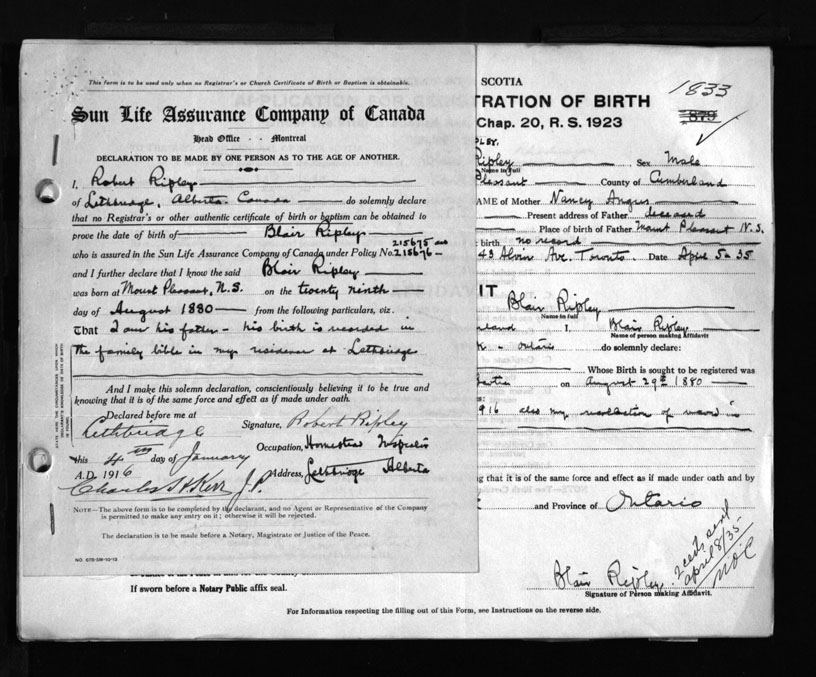 This form is to be used only when no Registrar's or Church Certificate of Birth or Baptism is obtainable.
Sun Life Assurance Company of Canada
Head Office - - Montreal
DECLARATION TO BE MADE BY ONE PERSON AS TO THE AGE OF ANOTHER.
I, Robert Ripley
of Lethbridge, Alberta. Canada do solemnly declare
that no Registrar's or other authentic certificate of birth or baptism can be obtained to
prove the date of birth of Blair Ripley
215675 and
who is assured in the Sun Life Assurance Company of Canada under Policy No. 215676
and I further declare that I know the said Blair Ripley
was born at Mount Pleasant, N.S. on the twenty ninth
day of August 1880 from the following particulars, viz.
That I am his father - his birth is recorded in
the family bible in my residence at Lethbridge
STATE HERE THE CIRCUMSTANCES UPON WHICH
DECLARANT'S KNOWLEDGE OF DATE OF BIRTH
IS FOUND.
And I make this solemn declaration, conscientiously believing it to be true and
knowing that it is of the same force and effect as if made under oath.
Declared before me at
Lethbridge
Signature, Robert Ripley
this 4th day of January
Occupation, Homestead Inspector
A.D. 1916
Address, Lethbridge Alberta
Charles H Kerr J.P.
NOTE—The above form is to be completed by the declarant, and no Agent or Representative of the Company
is permitted to make any entry on it; otherwise it will be rejected.
The declaration is to be made before a Notary, Magistrate or Justice of the Peace.
SCOTIA
1833
879
TRATION OF BIRTH
Chap. 20, R. S. 1923
PLEY.
Ripley Sex Male
Name in Full
Pleasant County of Cumberland
AME of Mother Nancy Angus
Present address of Father deceased
Place of birth of Father Mount Pleasant N.S.
birth no record
43 Alvin Ave. Toronto. Date April 5th 35
IT
Blair Ripley
Name in full
rland I. Blair Ripley
Name of person making affidavit
Ontario do solemnly declare:
Whose Birth is sought to be registered was
on August 29th 1880
s:
916 also my recollection of record in
ng that it is of the same force and effect as if made under oath and by
and Province of Ontario
Blair Ripley
Signature of Person making Affidavit.
2 certs sent
april 8/35
If sworn before a Notary Public affix seal.
For Information respecting the filling out of this Form, see Instructions on the reverse side.